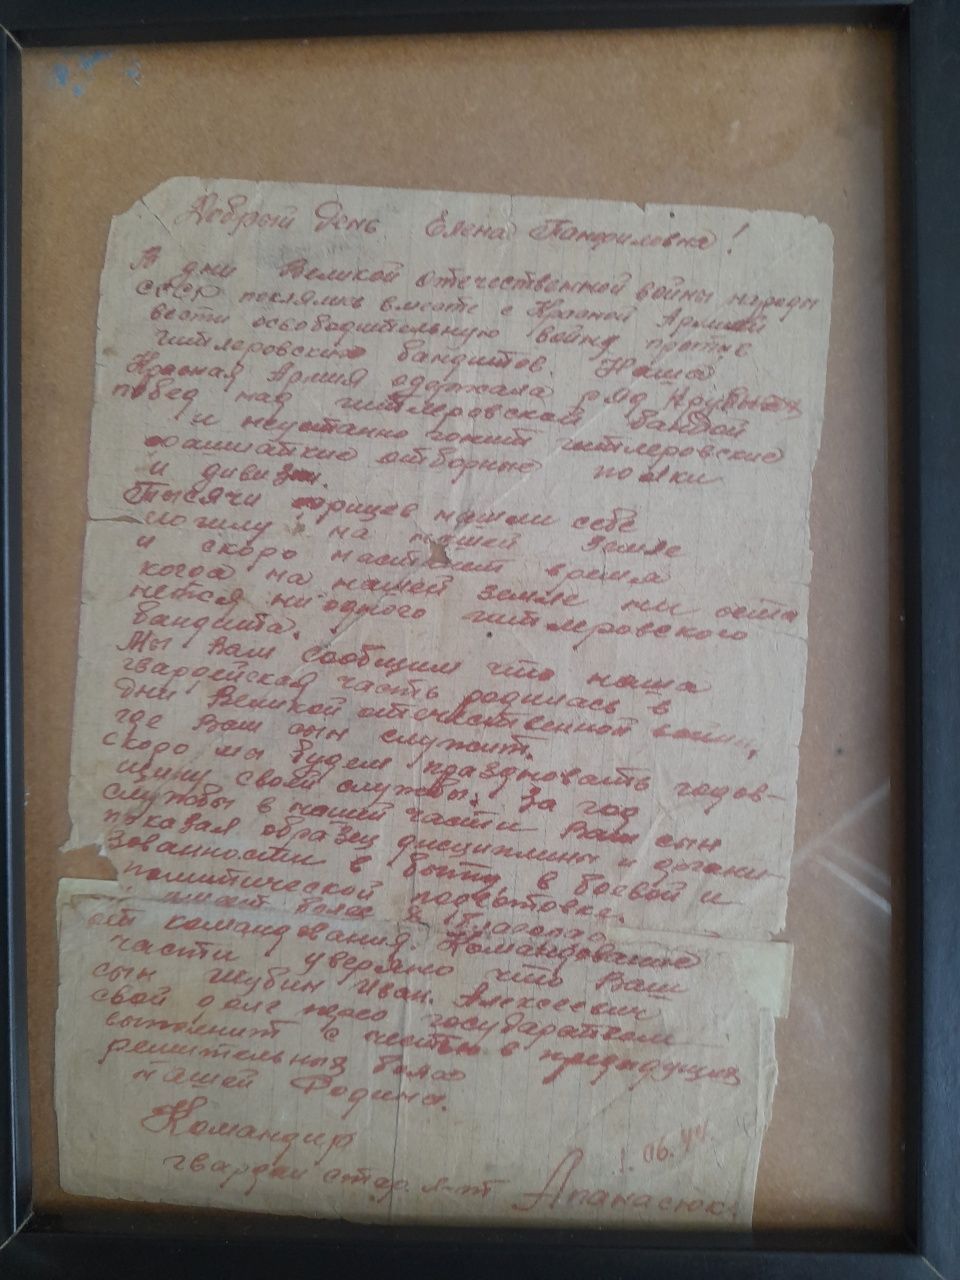 Добрый день Елена Панфиловна!
В дни Великой отечественной войны народы
СССР поклялись вместе с Красной Армией
вести освободительную войну против
гитлеровских бандитов. Наша
Красная Армия одержала ряд крупных
побед над гитлеровской бандой
и неустанно гонит гитлеровские
фашистские отборные полки
и дивизии.
Тысячи фрицев нашли себе
могилу на нашей земле
и скоро настанет время
когда на нашей земле ни оста
нется ни одного гитлеровского
бандита.
Мы Вам сообщим что наша
гвардейская часть родилась в
дни Великой отечественной войны,
где Ваш сын служит.
Скоро мы будем праздновать годов-
щину своей службы. За год
службы в нашей части Ваш сын
показал образец дисциплины и органи-
зованности в быту, в боевой и
политической подготовке.
имеет более 8 благодар.
от командования. Командование
части уверено что Ваш
сын Шубин Иван. Алексеевич
свой долг перед государством
выполнит с честью в предидущих
решительных боях
нашей Родины.
Командир
1.06.44.
гвардии стар. л-нт Апанасюк